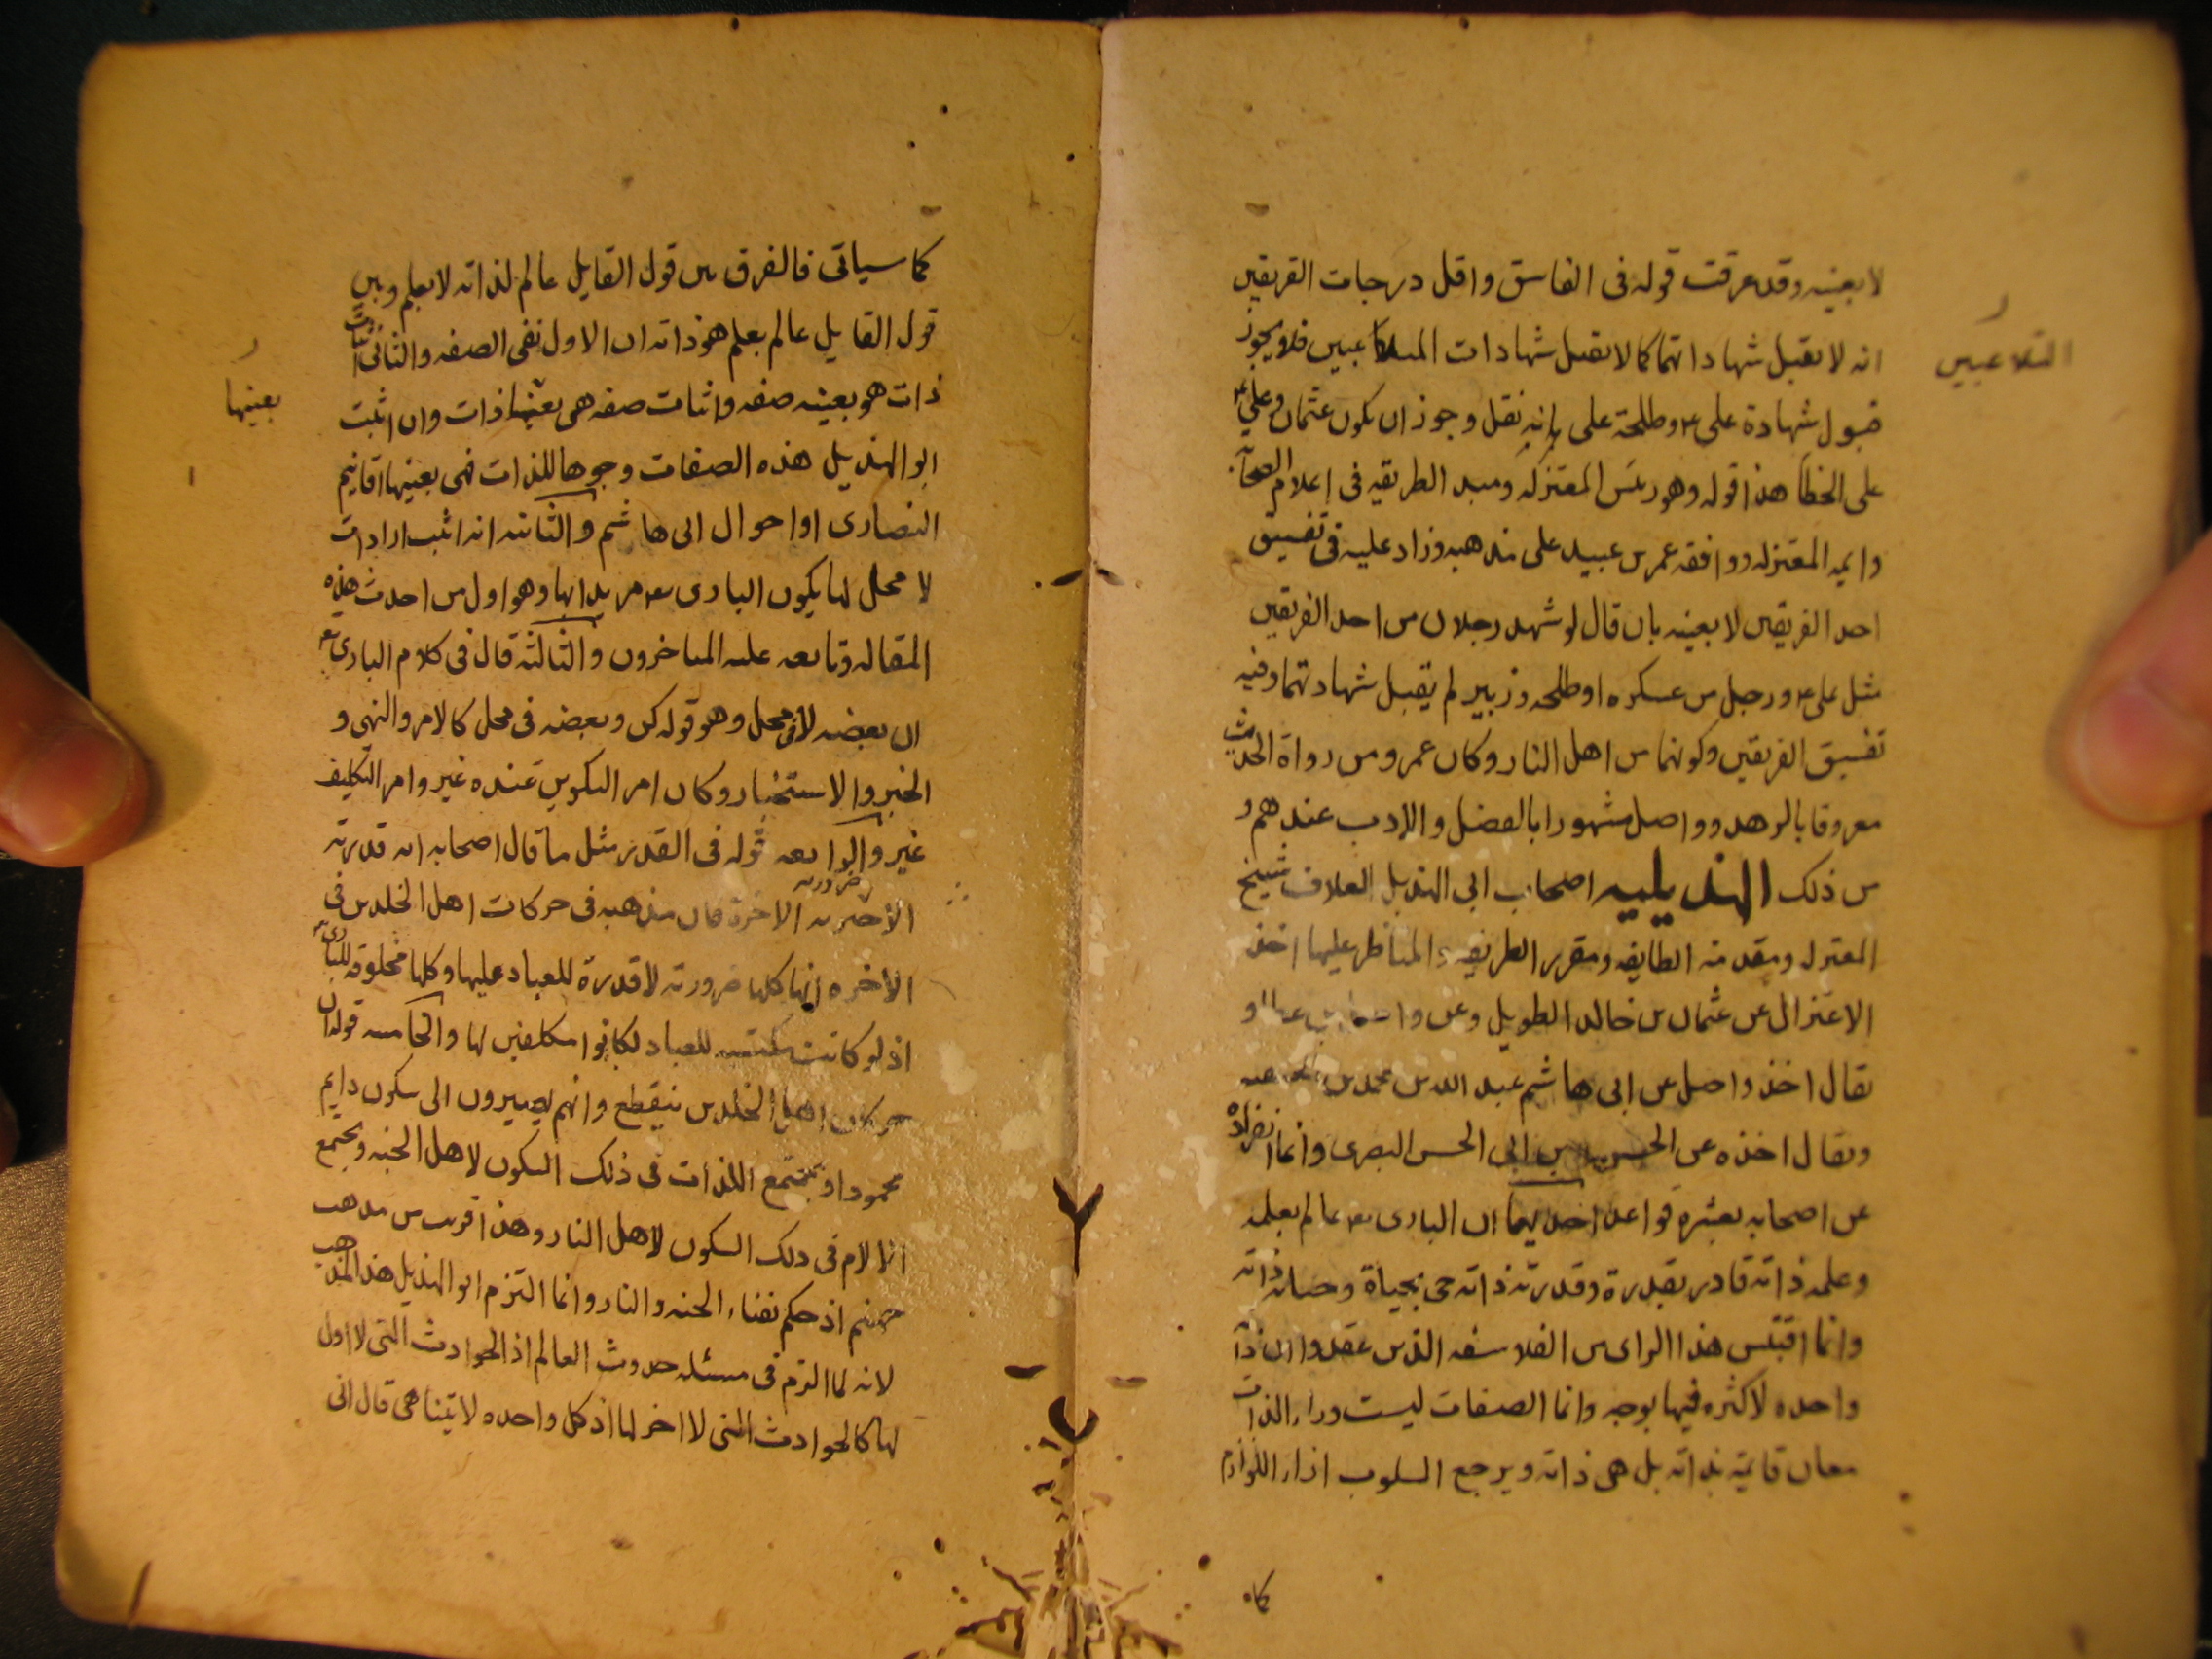 لا بعينه وقد عرفت قوله فى الفاسق واقل درجات الفريقين
انه لا يقبل شهادا تهما كما لا يقبل شهادات المتلاعبين فلا يجوز
التلاعبين
قبول شهادة على وطلحة على باقة نقل وجوز ان يكون عثمان وعلى
على الخطأ هذا قوله وهو رئس المعتزله ومبد الطريقه فى اعلام الصحابه
وايمه المعتزله ووافقه عمر بن عبيد على مذهبه وزاد عليه فى تفسيق
احد الفريقين لا بعينه بان قال لو شهد رجلان من احد الفريقين
مثل على ورجل من عسكره او طلحه وزبير لم يقبل شهادتهما وفيه
تفسيق الفريقين وكونهما من اهل النار وكان عمرو من رواة الحديث
معروفا بالزهد وواصل مشهورا بالفضل والادب عندهم و
من ذلك الهذيليه اصحاب ابى الهذيل العلاف شيخ
المعتزله ومقدمة الطايفه ومقرر الطريقه والمناظر عليها اخذ
الاعتزال عن عثمان بن خالد الطويل وعن واصل بن عطا و
يقال اخذ واصل عن ابى هاشم عبد الله بن محمد بن الحنفيه
ويقال اخذه عن الحسن بن ابى الحسن البصرى وانما انفراده
عن اصحابه بعشره قواعد احديهما ان البارى تع عالم بعلم
وعلمه ذاته قادر بقدرة وقدرته ذاته حى بحياة وحياته ذاته
وانما اقتبس هذا الراى من الفلاسفه الذين عقدوا ان ذاته
واحده لا كثره فيها بوجه وانما الصفات ليست وراء الذات
معان قايمة بذاته بل هى ذاته ويرجع السلوب ازاء اللوازم
كما
كما سياتى فالفرق بين قول القايل عالم لذاته لا بعلم وبين
قول القايل عالم بعلم هو ذاته ان الاول نفى الصفه والثانى اثبات
ذات هو بعينه صفه واثبات صفه هى بعينها ذات وان اثبت
بعينها
ابو الهذيل هذه الصفات وجوها للذات فهى بعينها اقانيم
النصارى او احوال ابى هاشم والثانيه انه اثبت ارادات
لا محل لها يكون البارى تع مريدا بها وهو اول من احدث هذه
المقاله وتابعه عليه المتاخرون والثالثه قال فى كلام البارى تع
ان بعضه لا فى محل وهو قوله كن وبعضه فى محل كالامر والنهى و
الخبر والاستخبار وكان امر التكوين عنده غير وامر التكليف
غير والرابعه قوله فى القدر مثل ما قال اصحابه انه قدرته
ضروريه
الاخيريه الاخرة فان مذهبه فى حركات اهل الخلدين فى
الاخره انها كلها ضرورته لا قدرة للعباد عليها وكلها مخلوقه للبارى تع
اذ لو كانت مكتسبه للعباد لكانوا مكلفين لها والخامسه قوله ان
حركات اهل الخلدين ينقطع وانهم يصيرون الى سكون دايم
محمودا ويجتمع اللذات فى ذلك السكون لاهل الجنه ويجتمع
الالام فى ذلك السكون لاهل النار وهذا قريب من مذهب
جهم اذ حكم بفناء الجنه والنار وانما التزم ابو الهذيل هذا المذهب
لانه لما الزم فى مسئله حدوث العالم اذ الحوادث التى لا اول
لها كالحوادث التى لا اخر لها اذ كل واحده لا يتناهى قال انى